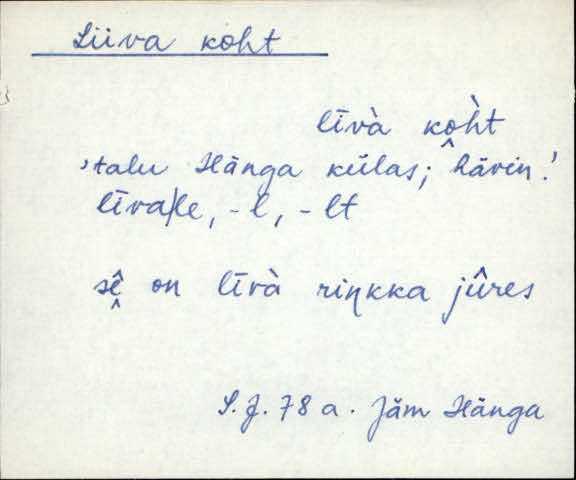 Liiva koht
līvà kòht
'talu Hänga külas; hävin.'
līva/le, -l, -lt
sê̬ on līvà riŋkka jûres
S.J. 78 a. Jäm Hänga